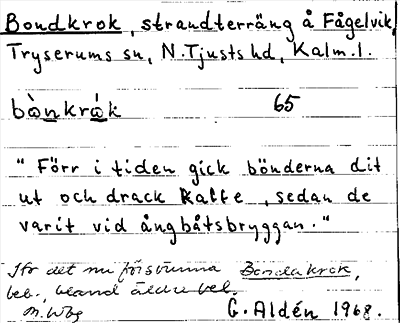 Bondkrok, strandterräng å Fågelvik,
Tryserums sn, N.Tjusts hd, Kalm.l.
bònkrák 65
"Förr i tiden gick bönderna dit
ut och drack kaffe, sedan de
varit vid ångbåtsbryggan."
Jfr det nu försvunna Bondakrok,
beb., bland äldre beb.
M. Wbg G. Aldén 1968.